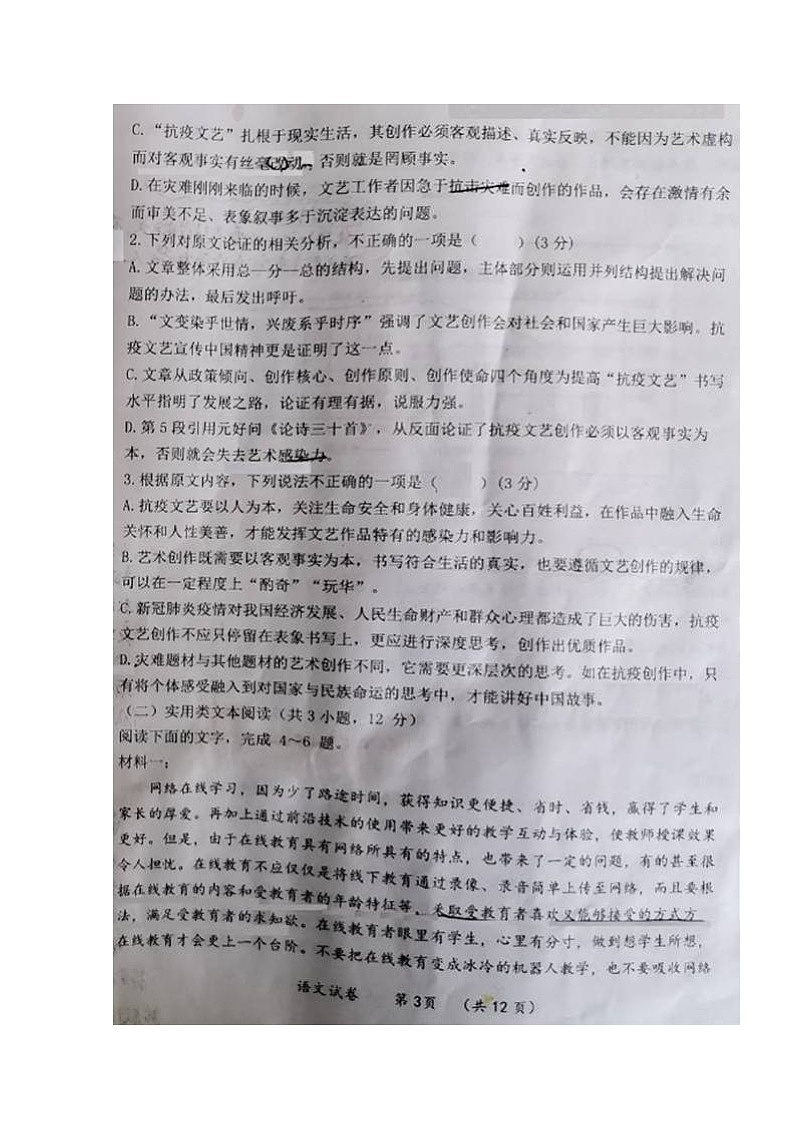 C.“抗疫文艺”扎根于现实生活，其创作必须客观描述、真实反映，不能因为艺术虚构
而对客观事实有丝毫改动，否则就是罔顾事实。
D.在灾难刚刚来临的时候，文艺工作者因急于抗击灾难而创作的作品，会存在激情有余
而审美不足、表象叙事多于沉淀表达的问题。
2.下列对原文论证的相关分析，不正确的一项是（  ）(3 分)
A.文章整体采用总—分—总的结构，先提出问题，主体部分则运用并列结构提出解决问
题的办法，最后发出呼吁。
B.“文变染乎世情，兴废系乎时序”强调了文艺创作会对社会和国家产生巨大影响。抗
疫文艺宣传中国精神更是证明了这一点。
C.文章从政策倾向、创作核心、创作原则、创作使命四个角度为提高“抗疫文艺”书写
水平指明了发展之路，论证有理有据，说服力强。
D.第 5 段引用元好问《论诗三十首》，从反面论证了抗疫文艺创作必须以客观事实为
本，否则就会失去艺术感染力。
3.根据原文内容，下列说法不正确的一项是（  ）(3 分)
A.抗疫文艺要以人为本，关注生命安全和身体健康，关心百姓利益，在作品中融入生命
关怀和人性美善，才能发挥文艺作品特有的感染力和影响力。
B.艺术创作既需要以客观事实为本，书写符合生活的真实，也要遵循文艺创作的规律，
可以在一定程度上“酌奇”“玩华”。
C.新冠肺炎疫情对我国经济发展、人民生命财产和群众心理都造成了巨大的伤害，抗疫
文艺创作不应只停留在表象书写上，更应进行深度思考，创作出优质作品。
D.灾难题材与其他题材的艺术创作不同，它需要更深层次的思考。如在抗疫创作中，只
有将个体感受融入到对国家与民族命运的思考中，才能讲好中国故事。
（二）实用类文本阅读（共 3 小题，12 分）
阅读下面的文字，完成 4～6 题。
材料一：
网络在线学习，因为少了路途时间，获得知识更便捷、省时、省钱，赢得了学生和
家长的厚爱。再加上通过前沿技术的使用带来更好的教学互动与体验，使教师授课效果
更好。但是，由于在线教育具有网络所具有的特点，也带来了一定的问题，有的甚至很
令人担忧。在线教育不应仅仅是将线下教育通过录像、录音简单上传至网络，而且要根
据在线教育的内容和受教育者的年龄特征等，采取受教育者喜欢又能够接受的方式方
法，满足受教育者的求知欲。在线教育者眼里有学生，心里有分寸，做到想学生所想，
在线教育才会更上一个台阶。不要把在线教育变成冰冷的机器人教学，也不要吸收网络
语文试卷  第 3页 （共 12 页）